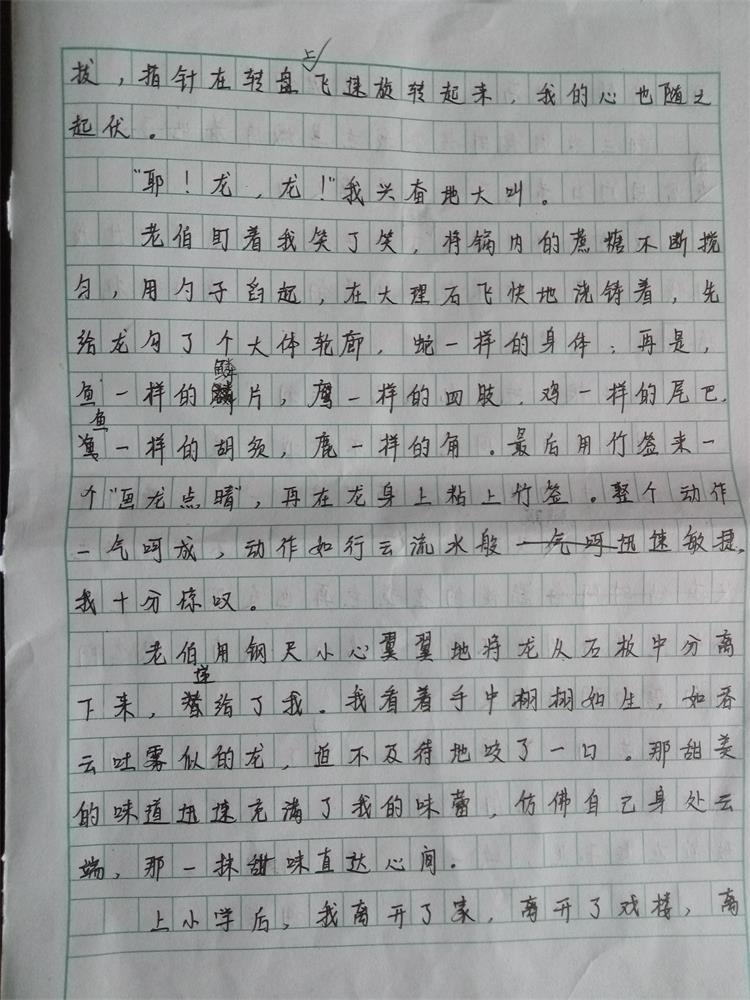 拔，指针在转盘上飞速旋转起来，我的心也随之
起伏。
"耶！龙，龙！"我兴奋地大叫。
老伯盯着我笑了笑，将锅内的蔗糖不断搅
匀，用勺子舀起，在大理石飞快地浇铸着，先
给龙勾了个大体轮廓，蛇一样的身体；再是，
鱼一样的鳞片，鹰一样的四肢，鸡一样的尾巴，
鱼一样的胡须，鹿一样的角。最后用竹签来一
个"画龙点睛"，再在龙身上粘上竹签。整个动作
一气呵成，动作如行云流水般迅速敏捷。
我十分惊叹。
老伯用钢尺小心翼翼地将龙从石板中分离
下来，递给了我。我看着手中栩栩如生，如吞
云吐雾似的龙，迫不及待地咬了一口。那甜美
的味道迅速充满了我的味蕾，仿佛自己身处云
端，那一抹甜味直达心间。
上小学后，我离开了家，离开了戏楼，离